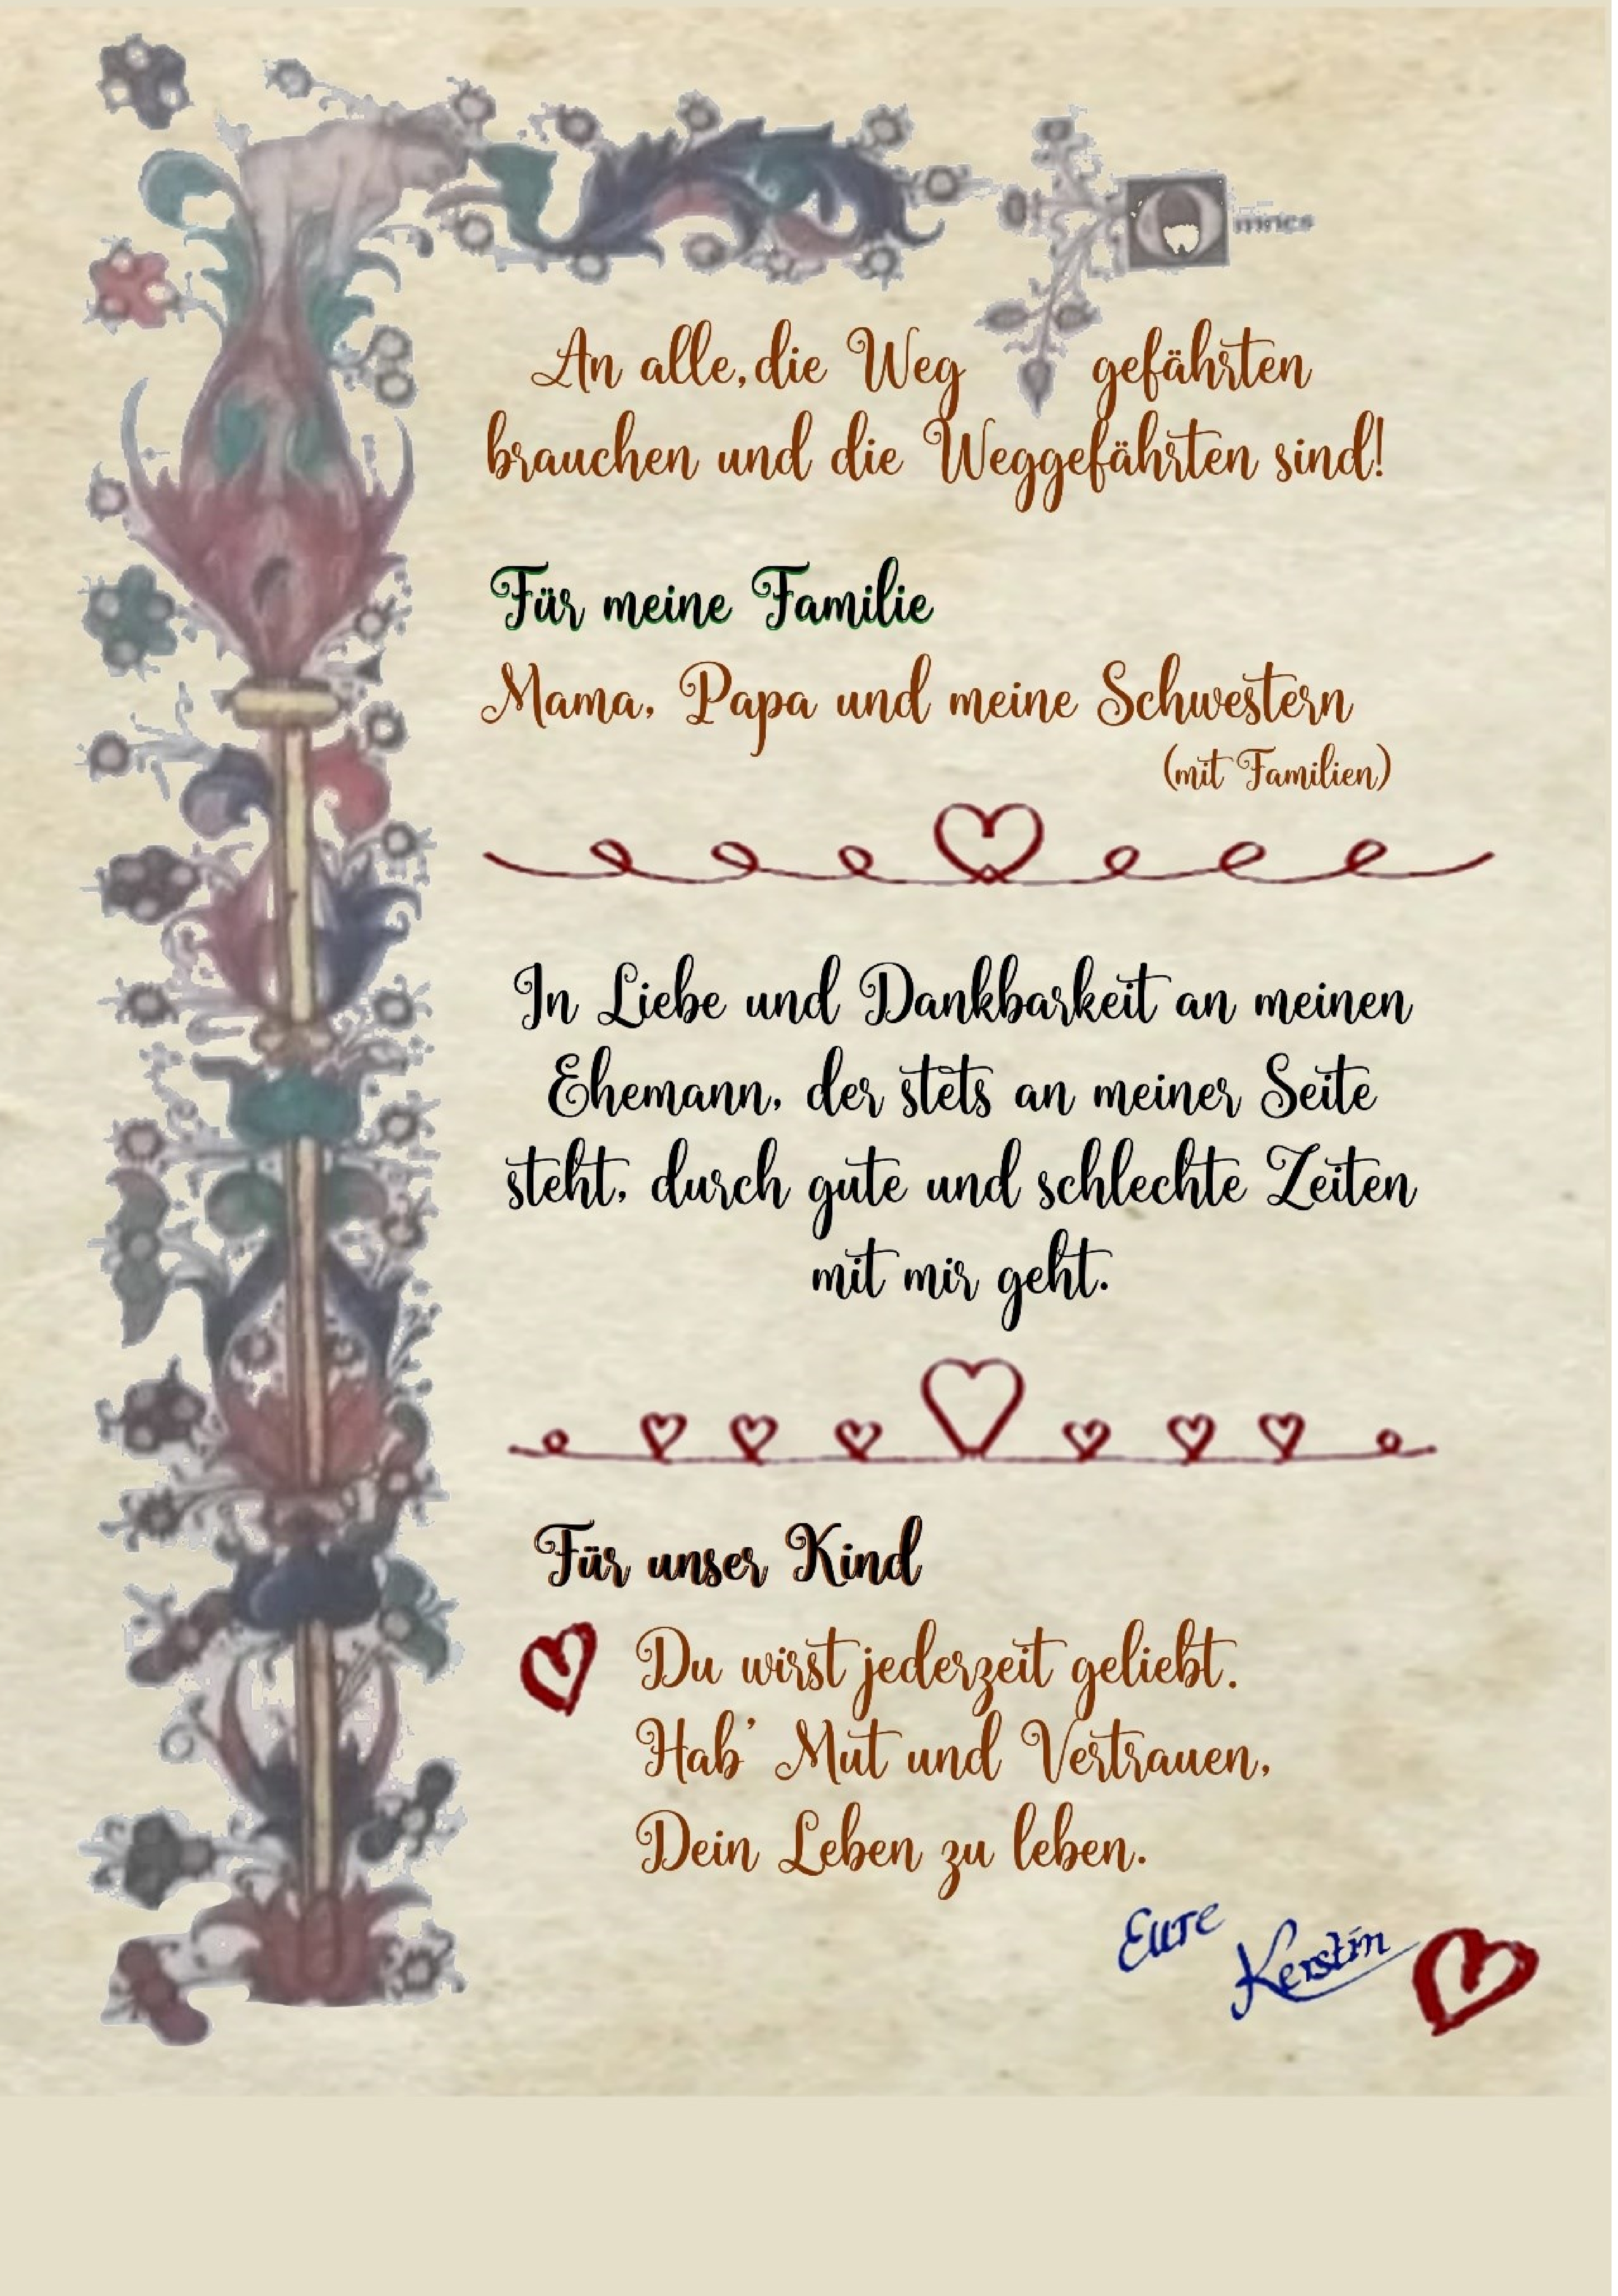 An alle, die Weg gefährten
brauchen und die Weggefährten sind!
Für meine Familie
Mama, Papa und meine Schwestern
(mit Familien)
In Liebe und Dankbarkeit an meinen
Ehemann, der stets an meiner Seite
steht, durch gute und schlechte Zeiten
mit mir geht.
Für unser Kind
Du wirst jederzeit geliebt.
Hab' Mut und Vertrauen,
Dein Leben zu leben.
Eure
Kerstin